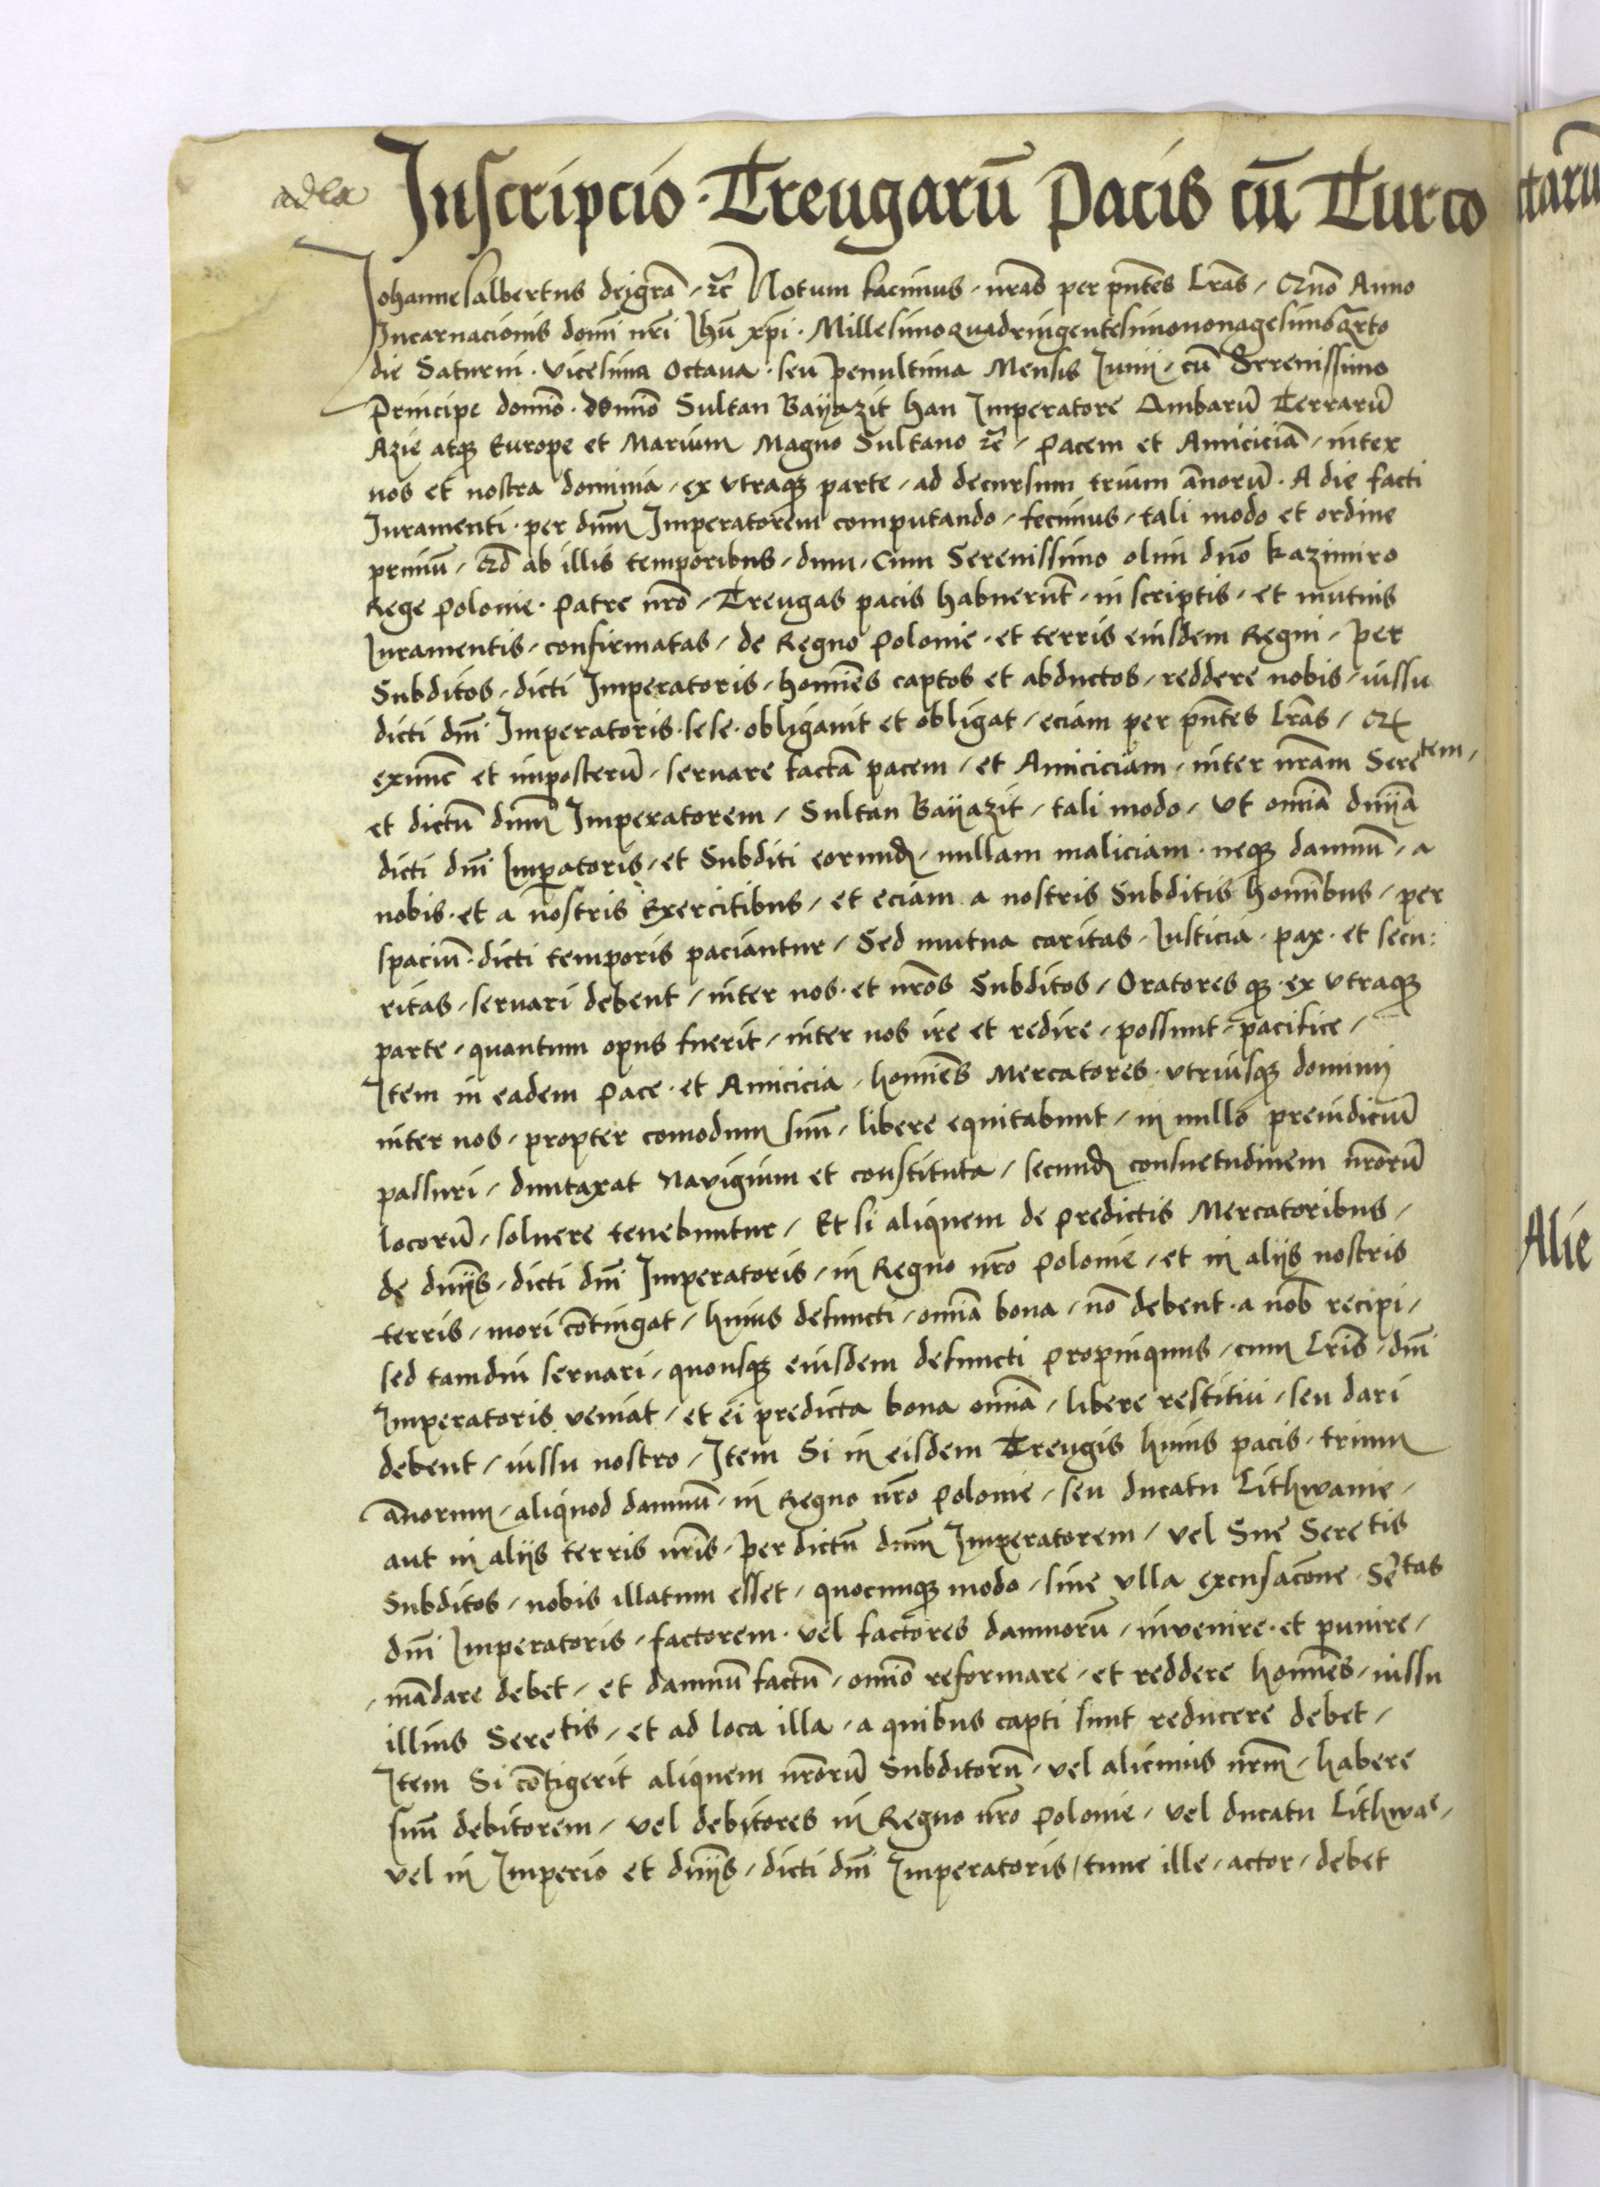 adla
Inscripcio · Treugarū Pacis cū Turco
Johannesalbertus deigrā · ⁊c̄ Notum facimus · nrās per pn̄tes Lrās / Anno
Incarnacionis domi nri Jhū xpi · Millesimoquadringentesimononagesimoqrto
die Saturni · vicesima octava · seu penultima Mensis Junij · cū Serenissimo
Principe domino · domino Sultan Bayazit han Imperatore Ambarū Terrarū
Azie atqꝫ Europe et Marium Magno Sultano ⁊c̄ / Pacem et Amiciciā / inter
nos et nostra dominia / ex utraqꝫ parte / ad decursum trium annorū · A die facti
Juramenti · per dnm̄ Imperatorem computando / fecimus / tali modo et ordine
primū / ab illis temporibus / dum / cum Serenissimo olim dn̄o Kazimiro
Rege Polonie · Patre nrō / Treugas pacis habuerūt / in scriptis / et mutuis
Juramentis / confirmatas / de Regno Polonie · et terris eiusdem Regni / per
Subditos / dicti Imperatoris / homīes captos et abductos / reddere nobis / iussu
dicti dn̄i Imperatoris · sese · obligauit et obligat / eciam per pn̄tes Lrās /
exnūc et inposterū / seruare factā pacem / et Amiciciam / inter nrām Sereᵗᵉᵐ /
et dictū dnm̄ Imperatorem / Sultan Bayazit / tali modo / Vt omīa dn̄ia
dicti dn̄i Impatoris / et Subditi eorundꝫ / nullam maliciam · neqꝫ damnū / a
nobis · et a nostris Exercitibus / et eciam a nostris Subditis homībus / per
spaciū · dicti temporis paciantur / Sed mutua caritas · Justicia · pax · et secu:
ritas / seruari debent / inter nos · et nrōs Subditos / Oratores qꝫ · ex vtraqꝫ
parte / quantum opus fuerit / inter nos ire et redire / possunt / pacifice /
Item in eadem Pace · et Amicicia / homīes Mercatores · vtriusqꝫ dominij
inter nos / propter comodum suū / libere equitabunt / in nullo preiudiciū
passuri / duntaxat Navigium et constituta / secundꝫ consuetudinem nrōrū
locorū / soluere tenebuntur / Et si aliquem de predictis Mercatoribus /
de dn̄ijs / dicti dn̄i Imperatoris / in Regno nrō Polonie / et in alijs nostris
terris / mori cōtingat / huius defuncti / omīa bona / nō debent · a nob recipi /
sed tamdiu seruari / quousqꝫ eiusdem defuncti propinquus / cum Lrīs · dn̄i
Imperatoris veniat / et ei predicta bona omīa / libere restitui / seu dari
debent / iussu nostro / Item Si in eisdem Treugis huius pacis · trium
ānorum / aliquod damnū / in Regno nrō Polonie / seu ducatu Lithwanie /
aut in alijs terris nrīs / per dictū dnm̄ Imperatorem / vel Sue Sereᵗⁱˢ
Subditos / nobis illatum esset / quocunqꝫ modo / sine vlla excusacōne · Serᵗᵃˢ
dn̄i Imperatoris / factorem · vel factores damnorū / invenire · et punire /
mādare debet / et damnū factū / omīo reformare / et reddere homīes / iussu
illius Sereᵗⁱˢ / et ad loca illa / a quibus capti sunt reducere debet /
Item Si cōtigerit aliquem nrōrū Subditorū · vel alicuius nrm̄ / habere
suū debitorem / vel debitores in Regno nrō Polonie / vel ducatu Lithwaᵉ /
vel in Imperio et dn̄ijs / dicti dn̄i Imperatoris / tunc ille / actor / debet
Alie